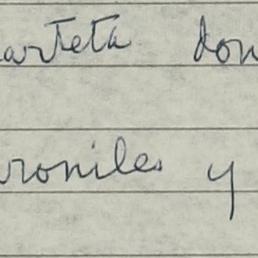 arteta don
roniles y